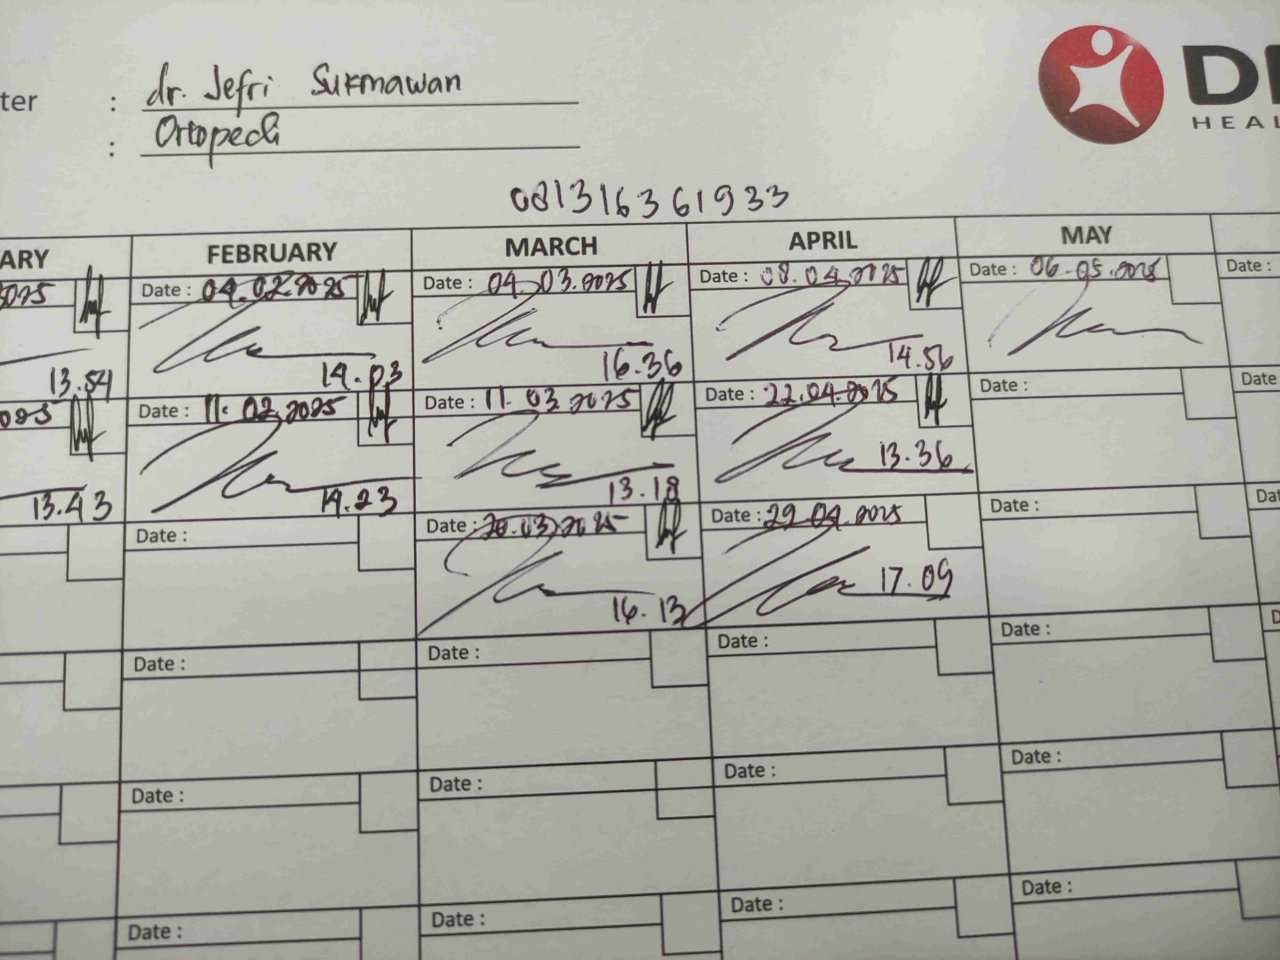 ter : dr. Jefri Sukmawan
: Ortopedi
DE
HEAL
081316361933
ARY FEBRUARY MARCH APRIL MAY
Date : 04.02.2025 Date : 04.03.2025 Date : 08.04.2025 Date : 06.05.2025 Date :
13.54 14.03 16.36 14.56
Date : 11.02.2025 Date : 11.03.2025 Date : 22.04.2025 Date : Date
13.43 14.23 13.18 13.36
Date : Date : 20.03.2025 Date : 29.04.2025 Date : Dat
16.13 17.09
Date : Date : Date : Date :
Date : Date : Date : Date :
Date : Date : Date : Date :